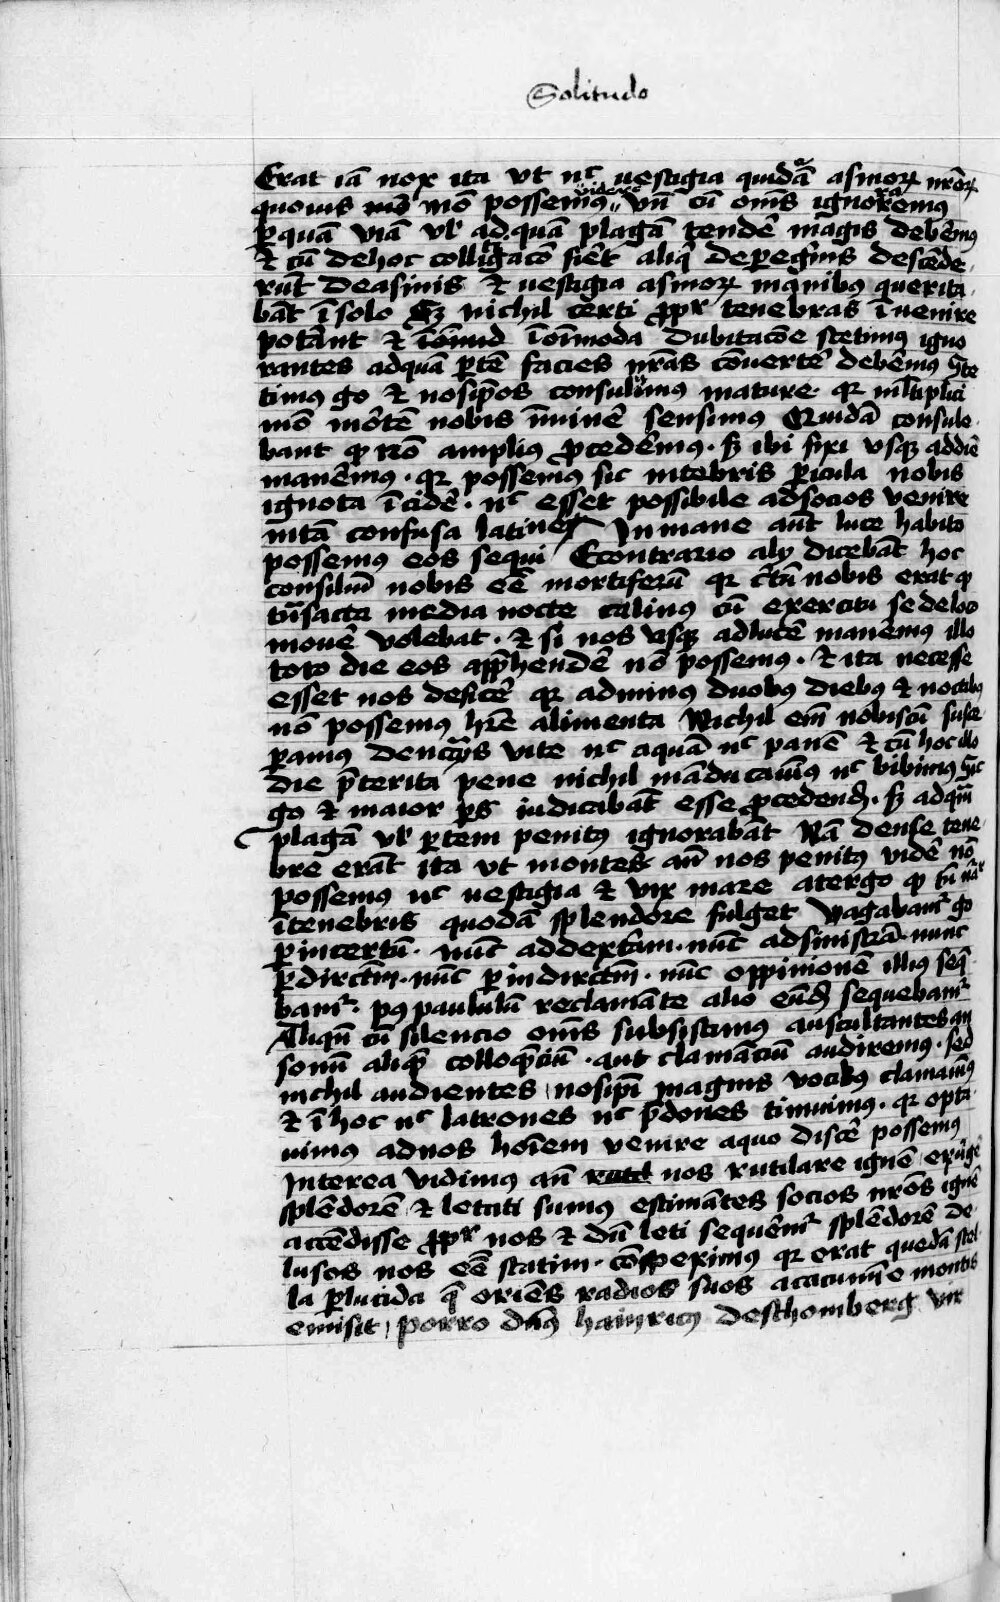 Solitudo
Erat iā nox ita vt nc̄ uestigia quidā asinoꝝ nr̄oꝝ
quouis mō possemus videre vn̄ cū om̄s ignoraremus
ꝑ quā viā vl' ad quā plagā tendē magis debēmus
⁊ cū de hoc colligacō fiēt aliq̄ de peḡnis descēde
rūt de asinis ⁊ uestigia asinoꝝ manibus querita
bāt ī solo Sꝫ nichil certi ꝓpr̄ tenebras īuenire
potāant ⁊ ī om̄imoda dubitacōe stetimus igno
rantes ad quā ꝑtē facies nr̄as cōuertē debēmus Ste
timus go ⁊ nosip̄os consuluimus mature · qr ml̄tiplici
mō mortē nobis īminē sensimus Quidā consule
bant ꝙ nō amplius ꝓcedēmus · sꝫ ibi fixi vsqꝫ ad diē
manēmus · qr possemus sic in tēbris ꝑicula nobis
ignota īcidē · nc̄ esset possibile ad socios venire
in tā confusa latine In mane aūt luce habito
possemus eos sequi Econtrario alij dicebāt hoc
consiliū nobis eē mortiferū qr c̄tū nobis erat ꝙ
trāsacta media nocte calinus cū exercitu se de loco
mouē volebat · ⁊ si nos vsqꝫ ad lucē manēmus illo
toto die eos app̄hendē nō possemus · ⁊ ita necesse
esset nos deficē qr ad minus duobus diebus ⁊ noctibus
nō possemus hr̄e alimenta Nichil em̄ nobiscū susce
ꝑamus de nc̄c̄ijs vite nc̄ aquā nc̄ panē ⁊ cū hoc illo
die p̄terita pene nichil māducauim̄us nc̄ bibimus Sic
go ⁊ maior ꝑs iudicabāt esse ꝓcedend̄ · sꝫ ad quā
plagā vl' ꝑtem penitus ignorabāt Nā dense tene
bre erāt ita vt montes an̄ nos penitus vidē nō
possemus nc̄ uestigia ⁊ vix mare a tergo ꝙ tn̄
ī tenebris quodā splendore fulget Vagabam̄ go
ꝑ incertū · nūc ad dextram · nūc ad sinistrā · nunc
ꝑ dirc̄tm̄ · nūc ꝑ indirc̄tm̄ · nūc oppinionē illius seq̄
bam̄ · pꝰ paululū reclamāte alio eūd̄ sequebam̄
Aliqn̄ cū silencio om̄s subsistimus auscultantes an
sonū aliq̄ colloq̄ciū · aut clamāciū audiremus · sed
nichil audientes nosip̄i magnis vocibus clamauimus
⁊ ī hoc nc̄ latrones nc̄ p̄dones timuimus · qr opta
uimus ad nos hoīem venire a quo discē possemus
Interea vidimus an̄ nos rutilare ignē
splēdorē ⁊ letati sumus estimātes socios nr̄os ignē
accēdisse ꝓpr̄ nos ⁊ dū leti sequēm̄ splēdorē de
lusos nos eē statim cōsperimus qr erat quedā stel
la ꝑlucida q̄ oriēs radios suos a cacumīe montis
emisit Porro dn̄s hainricus de schomberg vir